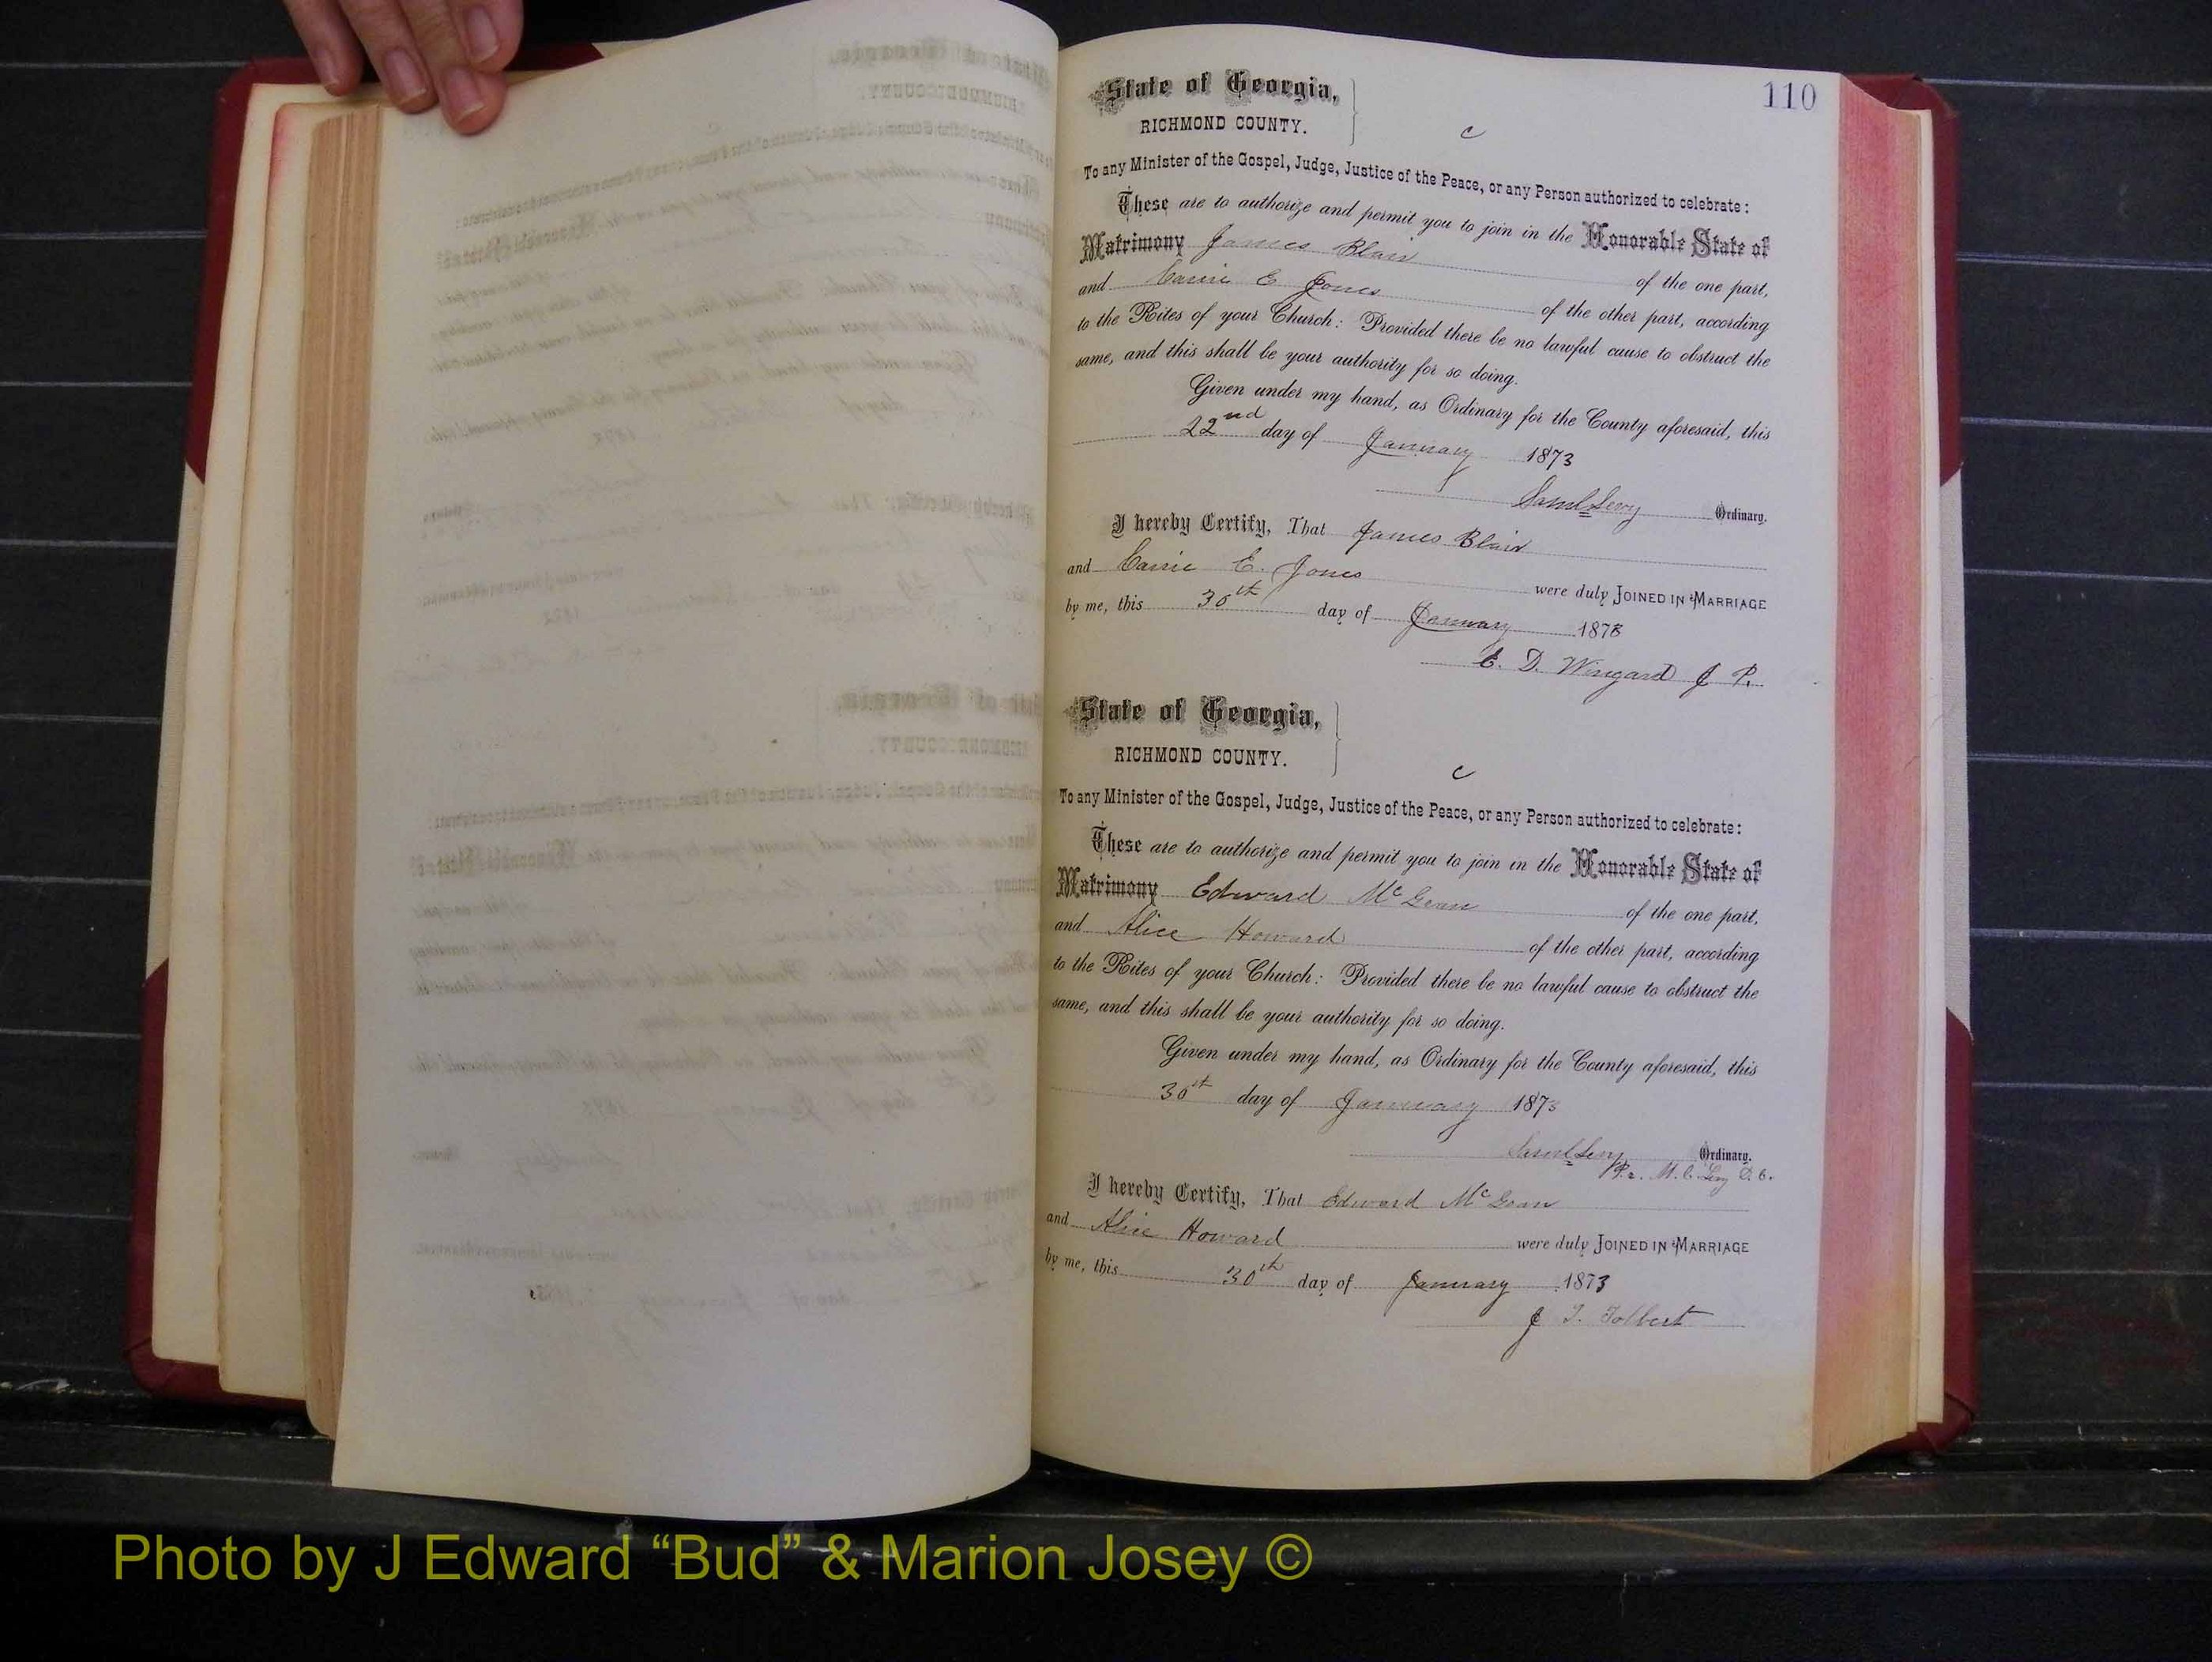 110
State of Georgia,
RICHMOND COUNTY.
c
To any Minister of the Gospel, Judge, Justice of the Peace, or any Person authorized to celebrate:
These are to authorize and permit you to join in the Honorable State of
Matrimony James Blair of the one part,
and Carrie E Jones of the other part, according
to the Rites of your Church: Provided there be no lawful cause to obstruct the
same, and this shall be your authority for so doing.
Given under my hand, as Ordinary for the County aforesaid, this
22nd day of January 1873
Saml Levy Ordinary.
I hereby Certify, That James Blair
and Carrie E. Jones were duly JOINED IN MARRIAGE
by me, this 30th day of January 1873
E. D. Wingard J P.
State of Georgia,
RICHMOND COUNTY.
c
To any Minister of the Gospel, Judge, Justice of the Peace, or any Person authorized to celebrate:
These are to authorize and permit you to join in the Honorable State of
Matrimony Edward McLean of the one part,
and Alice Howard of the other part, according
to the Rites of your Church: Provided there be no lawful cause to obstruct the
same, and this shall be your authority for so doing.
Given under my hand, as Ordinary for the County aforesaid, this
30th day of January 1873
Saml Levy Ordinary.
Pr. M. C. Levy D. C.
I hereby Certify, That Edward McLean
and Alice Howard were duly JOINED IN MARRIAGE
by me, this 30th day of January 1873
J T. Tolbert
Photo by J Edward “Bud” & Marion Josey ©